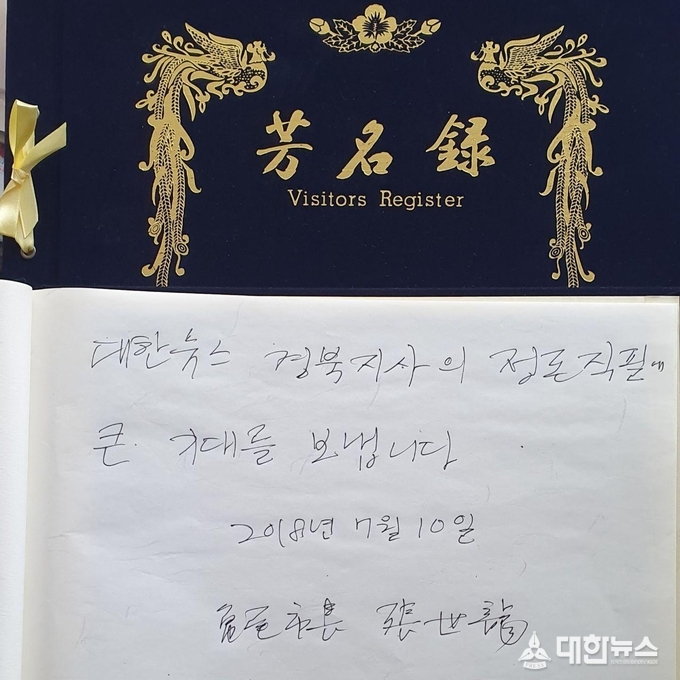 芳名録
Visitors Register
대한뉴스 경북지사의 정론직필에
큰 기대를 보냅니다
2018년 7월 10일
龜尾市長 張世龍
대한뉴스